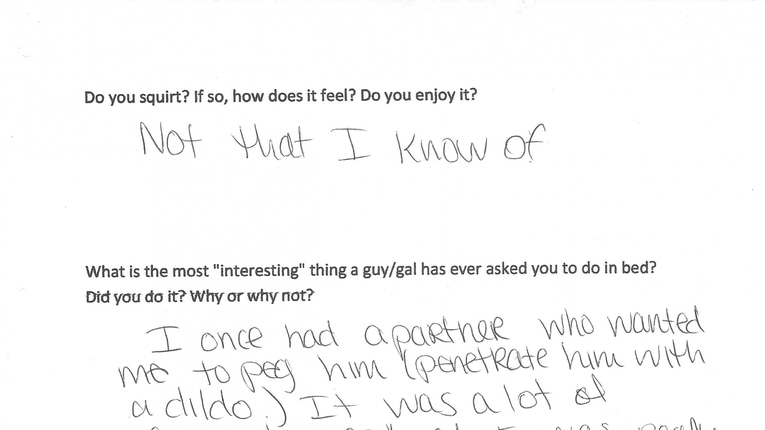 Do you squirt? If so, how does it feel? Do you enjoy it?
Not that I know of
What is the most "interesting" thing a guy/gal has ever asked you to do in bed?
Did you do it? Why or why not?
I once had a partner who wanted
me to peg him (penetrate him with
a dildo.) It was a lot of